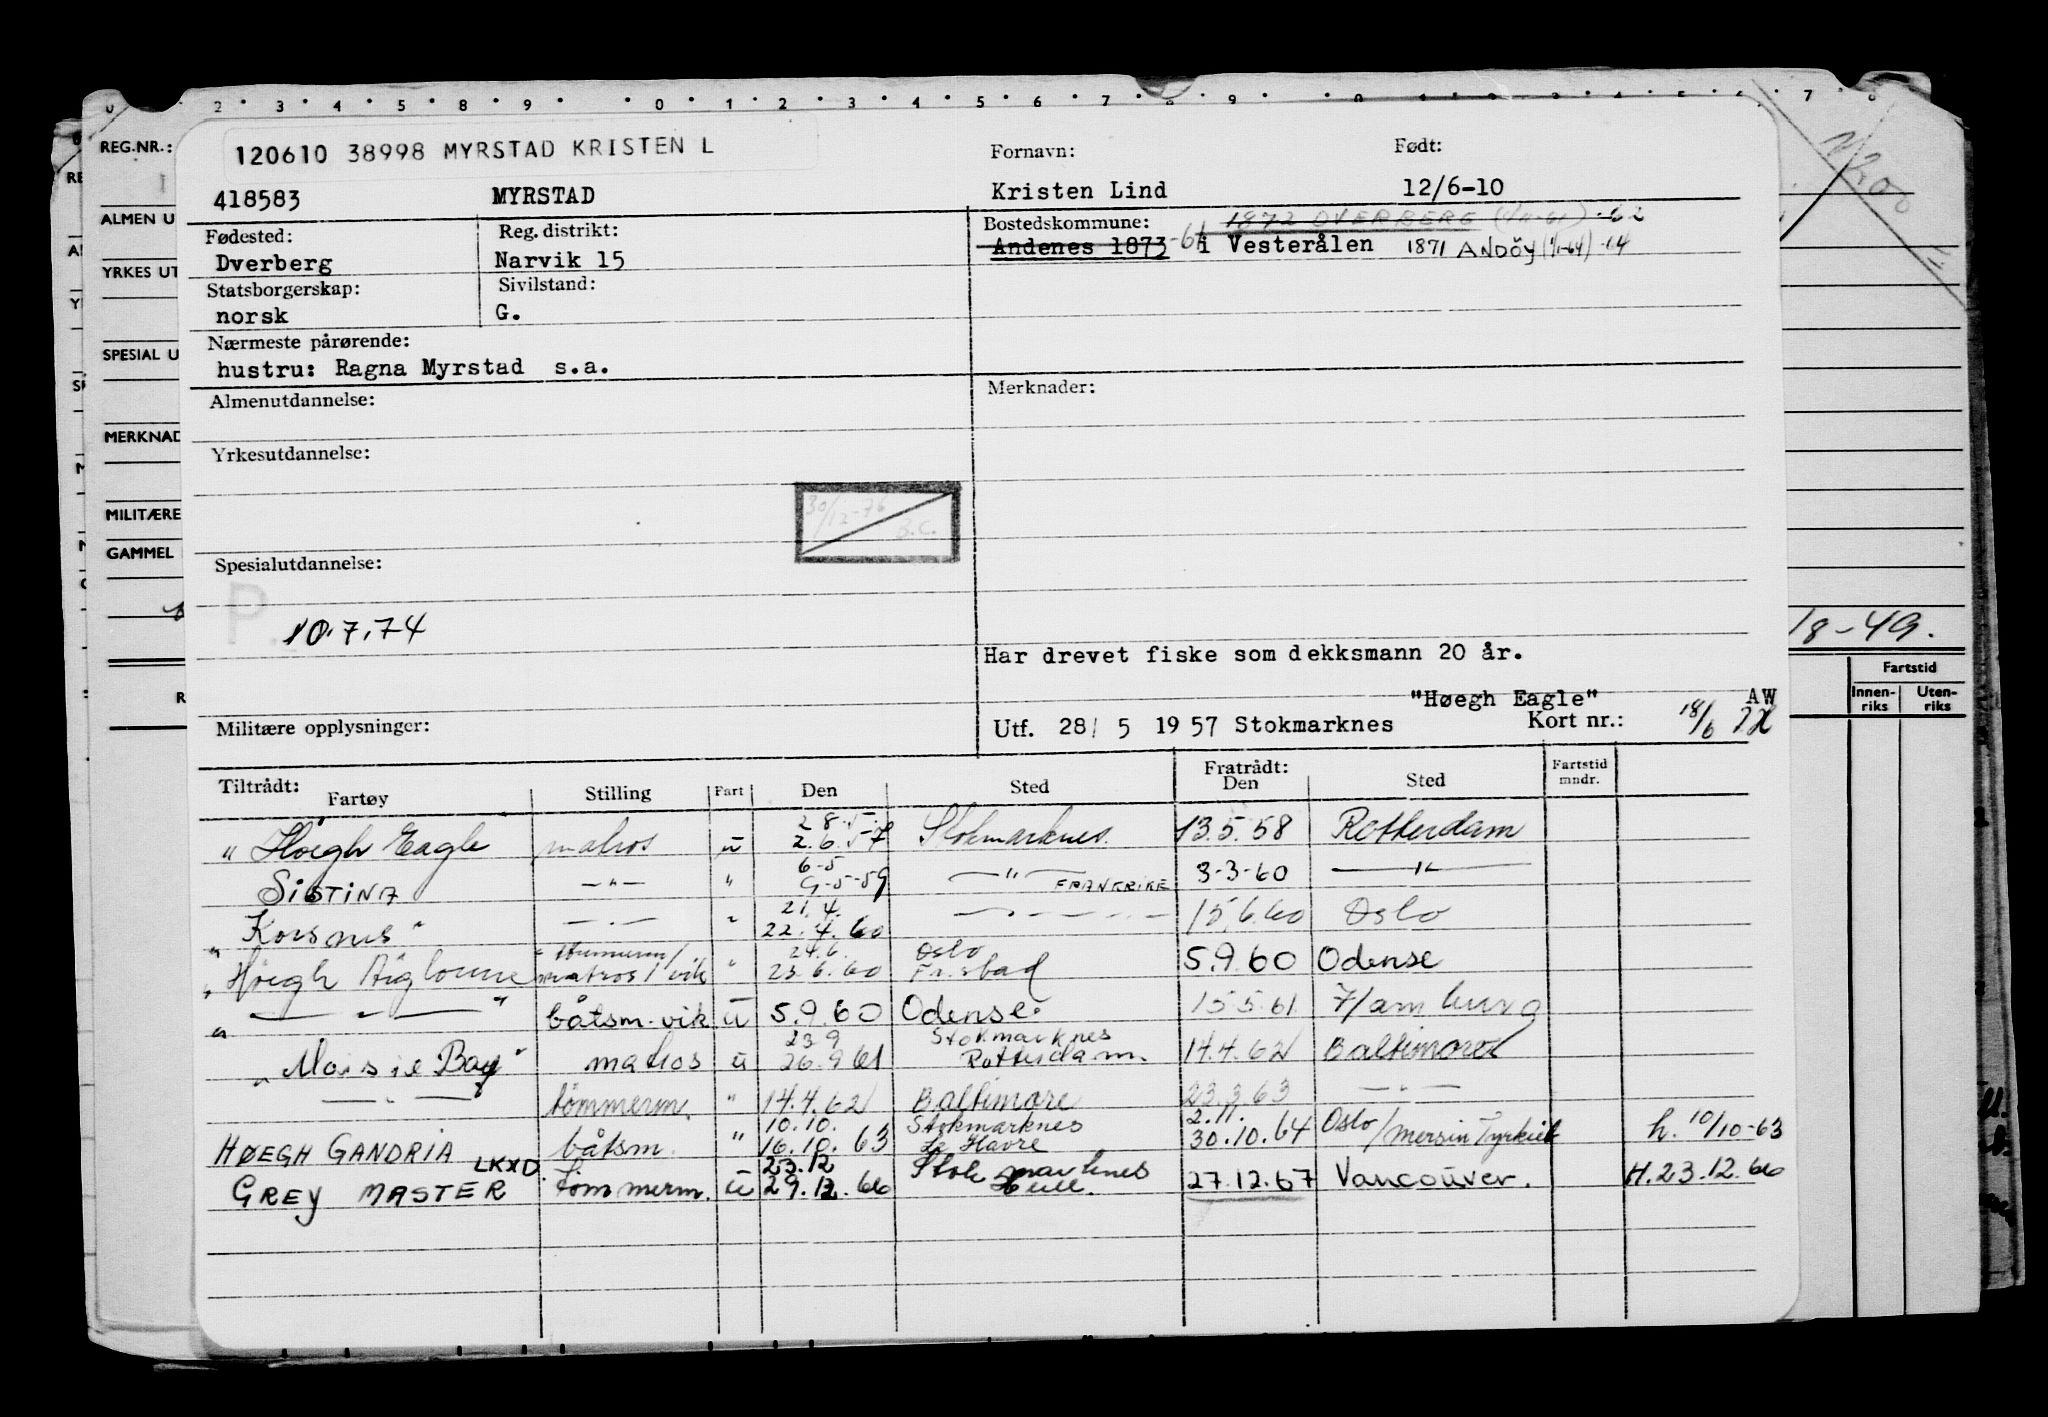 120610 38998 MYRSTAD KRISTEN L
REG.NR.:
Fornavn:
Født:
418583 MYRSTAD Kristen Lind 12/6-10
ALMEN U
Fødested: Reg. distrikt: Bostedskommune: 1872 DVERBERG (1/1-61) -62
Dverberg Narvik 15 Andenes 1873 -61 i Vesterålen 1871 ANDÖY (1/1-64) -14
YRKES UT
Statsborgerskap: Sivilstand:
norsk G.
Nærmeste pårørende:
SPESIAL U
hustru: Ragna Myrstad s.a.
Almenutdannelse: Merknader:
MERKNAD
Yrkesutdannelse:
30/12-76
B.C.
MILITÆRE
GAMMEL
Spesialutdannelse:
P.
10.7.74
18-49.
Har drevet fiske som dekksmann 20 år.
Fartstid
Innen-riks Uten-riks
"Høegh Eagle" AW
Militære opplysninger: Utf. 28/ 5 19 57 Stokmarknes Kort nr.: 18/6
Tiltrådt: Fratrådt: Fartstid mndr.
Fartøy Stilling Fart Den Sted Den Sted
28.5.
" Høegh Eagle matros u 2.6.57 Stokmarknes. 13.5.58 Rotterdam
6-5
SISTINA —"— " 9-5-59 —"— FRANKRIKE 3-3-60 —"—
21.4.
" Korsnes " —"— " 22.4.60 15.6.60 Oslo
24.6. Oslo
" Høegh Aiglonne matros/vik " 23.6.60 Fr.stad 5.9.60 Odense
" —"— " båtsm. vik u 5.9.60 Odense. 15.5.61 Hamburg
23.9 Stokmarknes
" Moisie Bay" matros u 26.9.61 Rotterdam. 14.4.62 Baltimore
—"— tømmerm. " 14.4.62 Baltimore 23.3.63 —"—
10.10. Stokmarknes 2.11.
HØEGH GANDRIA båtsm. " 16.10.63 Le Havre 30.10.64 Oslo/Mersin Tyrkiet h. 10/10-63
LKXD 23.12 Stokmarknes
GREY MASTER tømmerm. u 29.12.66 Hull. 27.12.67 Vancouver. H.23.12.66